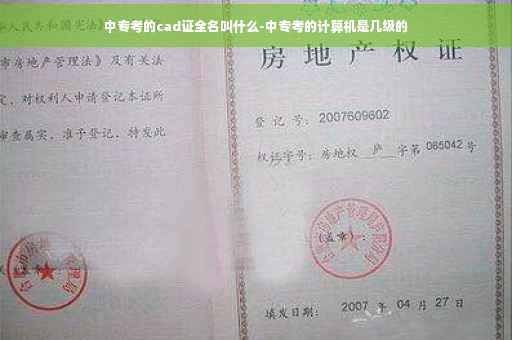 中专考的cad证全名叫什么-中专考的计算机是几级的
华人民共和国宪法》
市房地产管理法》及有关法
定，对权利人申请登记本证所
审查属实，准予登记，特发此
房地产权证
登 记 号：2007609602
权证字号：房地权 庐 字第 065042 号
(盖章)：
填发日期： 2007 年 04 月 27 日